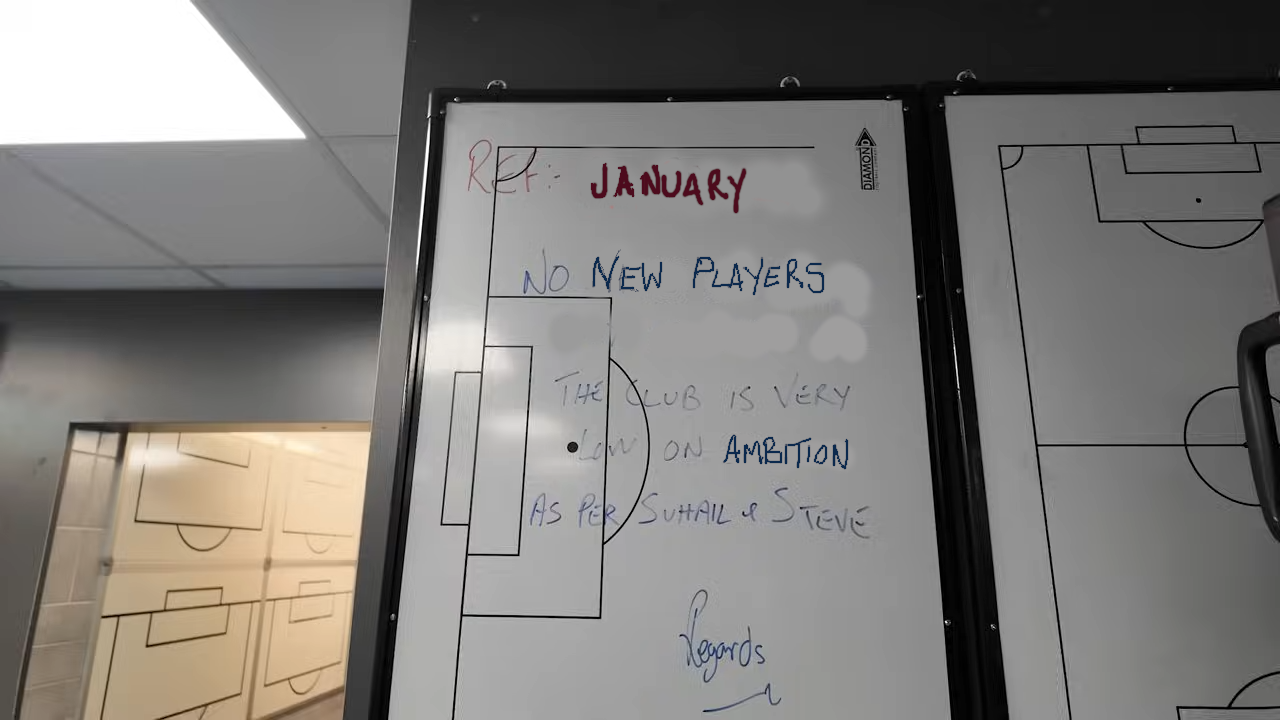 REF:- JANUARY
NO NEW PLAYERS
THE CLUB IS VERY
LOW ON AMBITION
AS PER SUHAIL & STEVE
Regards
DIAMOND